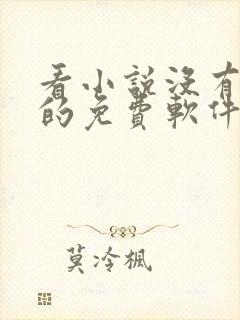 看小說沒有
的免費軟件
莫冷楓